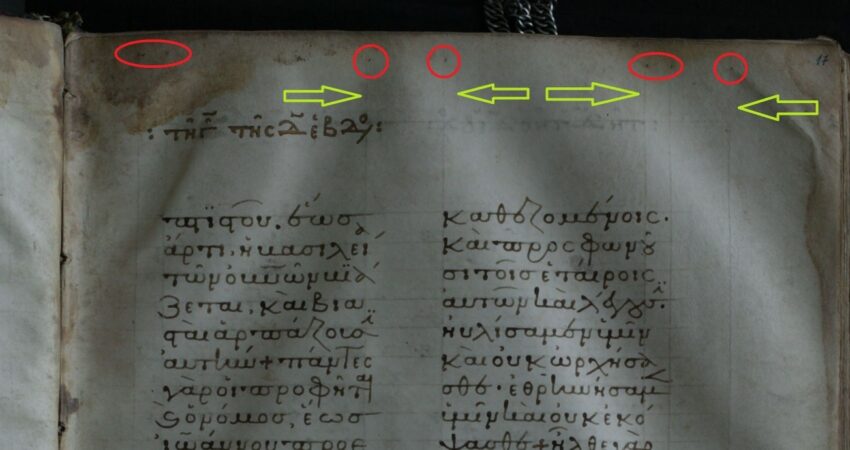 17
: τῇ γ̄ τῆς δ̄ ἑβδο :
πτιστοῦ. ἕως
ἄρτι, ἡ βασιλεί
τῶν οὐνῶν βιά
ζεται, καὶ βια
σταὶ ἁρπάζουσ
αὐτὴν + πάντες
γὰρ οἱ προφῆται
ὁ νόμος, ἕως
ἰωάννου προε
καθεζομένοις.
καὶ προσφωνοῦ
σι τοῖς ἑταίροις
αὐτῶν καὶ λέγουσ
ηὐλίσαμεν ὑμῖν
καὶ οὐκ ὠρχήσα
σθε · ἐθρηνήσαμ
ὑμῖν καὶ οὐκ ἐκό
ψασθε + ἦλθε γὰρ